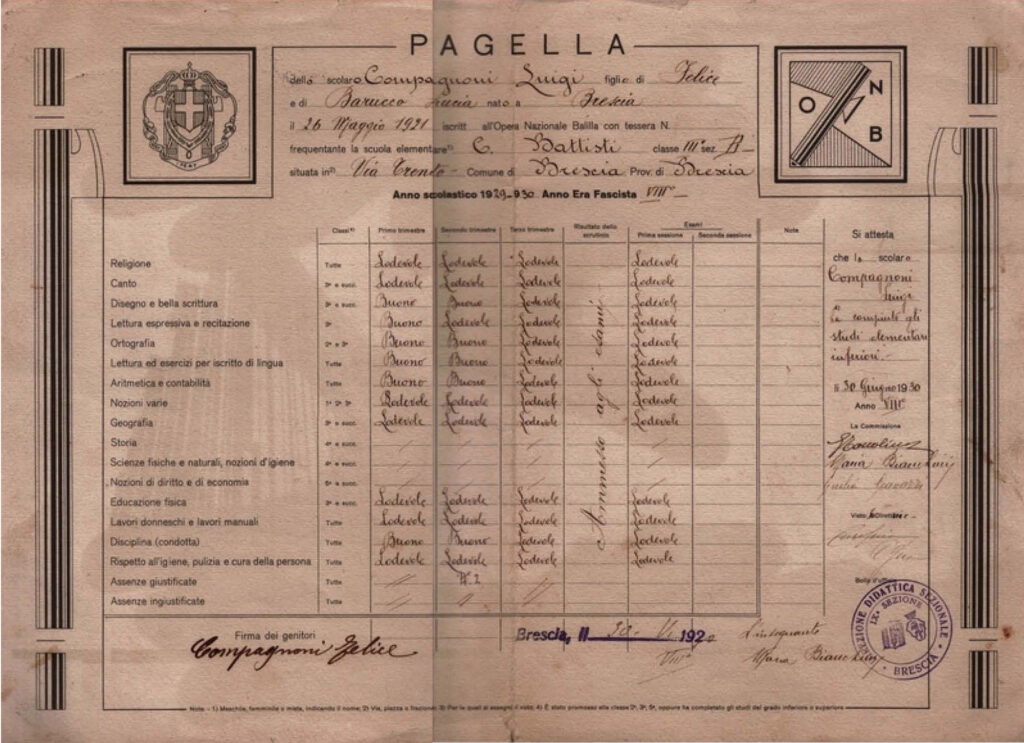 PAGELLA
dello scolaro Compagnoni Luigi figlio di Felice
e di Barucco Lucia nato a Brescia
il 26 Maggio 1921 iscritt all'Opera Nazionale Balilla con tessera N.
frequentante la scuola elementare 1) C. Battisti classe IIIª sez. B
situata in 2) Via Trento - Comune di Brescia Prov. di Brescia
Anno scolastico 1929-930 Anno Era Fascista VIIIº
O N B
Classi 3) Primo trimestre Secondo trimestre Terzo trimestre Risultato dello scrutinio Esami Prima sessione Seconda sessione Note
Religione Tutte Lodevole Lodevole Lodevole Lodevole
Canto 3ª e succ. Lodevole Lodevole Lodevole Lodevole
Disegno e bella scrittura 3ª e succ. Buono Buono Lodevole Lodevole
Lettura espressiva e recitazione Buono Lodevole Lodevole Lodevole
Ortografia 2ª e 3ª Buono Buono Lodevole Lodevole
Lettura ed esercizi per iscritto di lingua Buono Buono Lodevole Lodevole
Aritmetica e contabilità Tutte Buono Buono Lodevole Lodevole
Nozioni varie 1ª 2ª 3ª Lodevole Lodevole Lodevole Lodevole
Geografia 3ª e succ. Lodevole Lodevole Lodevole Lodevole
Storia 4ª e succ.
Scienze fisiche e naturali, nozioni d'igiene 4ª e succ.
Nozioni di diritto e di economia e succ.
Educazione fisica e succ. Lodevole Lodevole Lodevole Lodevole
Lavori donneschi e lavori manuali Tutte Lodevole Lodevole Lodevole Lodevole
Disciplina (condotta) Tutte Buono Buono Lodevole Lodevole
Rispetto all'igiene, pulizia e cura della persona Tutte Lodevole Lodevole Lodevole Lodevole
Assenze giustificate Tutte N. 2
Assenze ingiustificate Tutte
Ammesso agli esami
Si attesta
che lo scolare
Compagnoni
Luigi
ha compiuto gli
studi elementari
inferiori.-
li 30 Giugno 1930
Anno VIIIº
La Commissione
Maria Bianchini
Visto, il Direttore
Bollo d'ufficio
DIREZIONE DIDATTICA SEZIONALE
IXª SEZIONE
BRESCIA
Firma dei genitori
Compagnoni Felice
Brescia, li 30-VI 1930
VIIIº
L'insegnante
Maria Bianchini
Note - 1) Maschile, femminile o mista, indicando il nome; 2) Via, piazza o frazione; 3) Per le quali si assegni il voto; 4) È stato promosso alla classe 2ª, 3ª, 5ª, oppure ha completato gli studi del grado inferiore o superiore